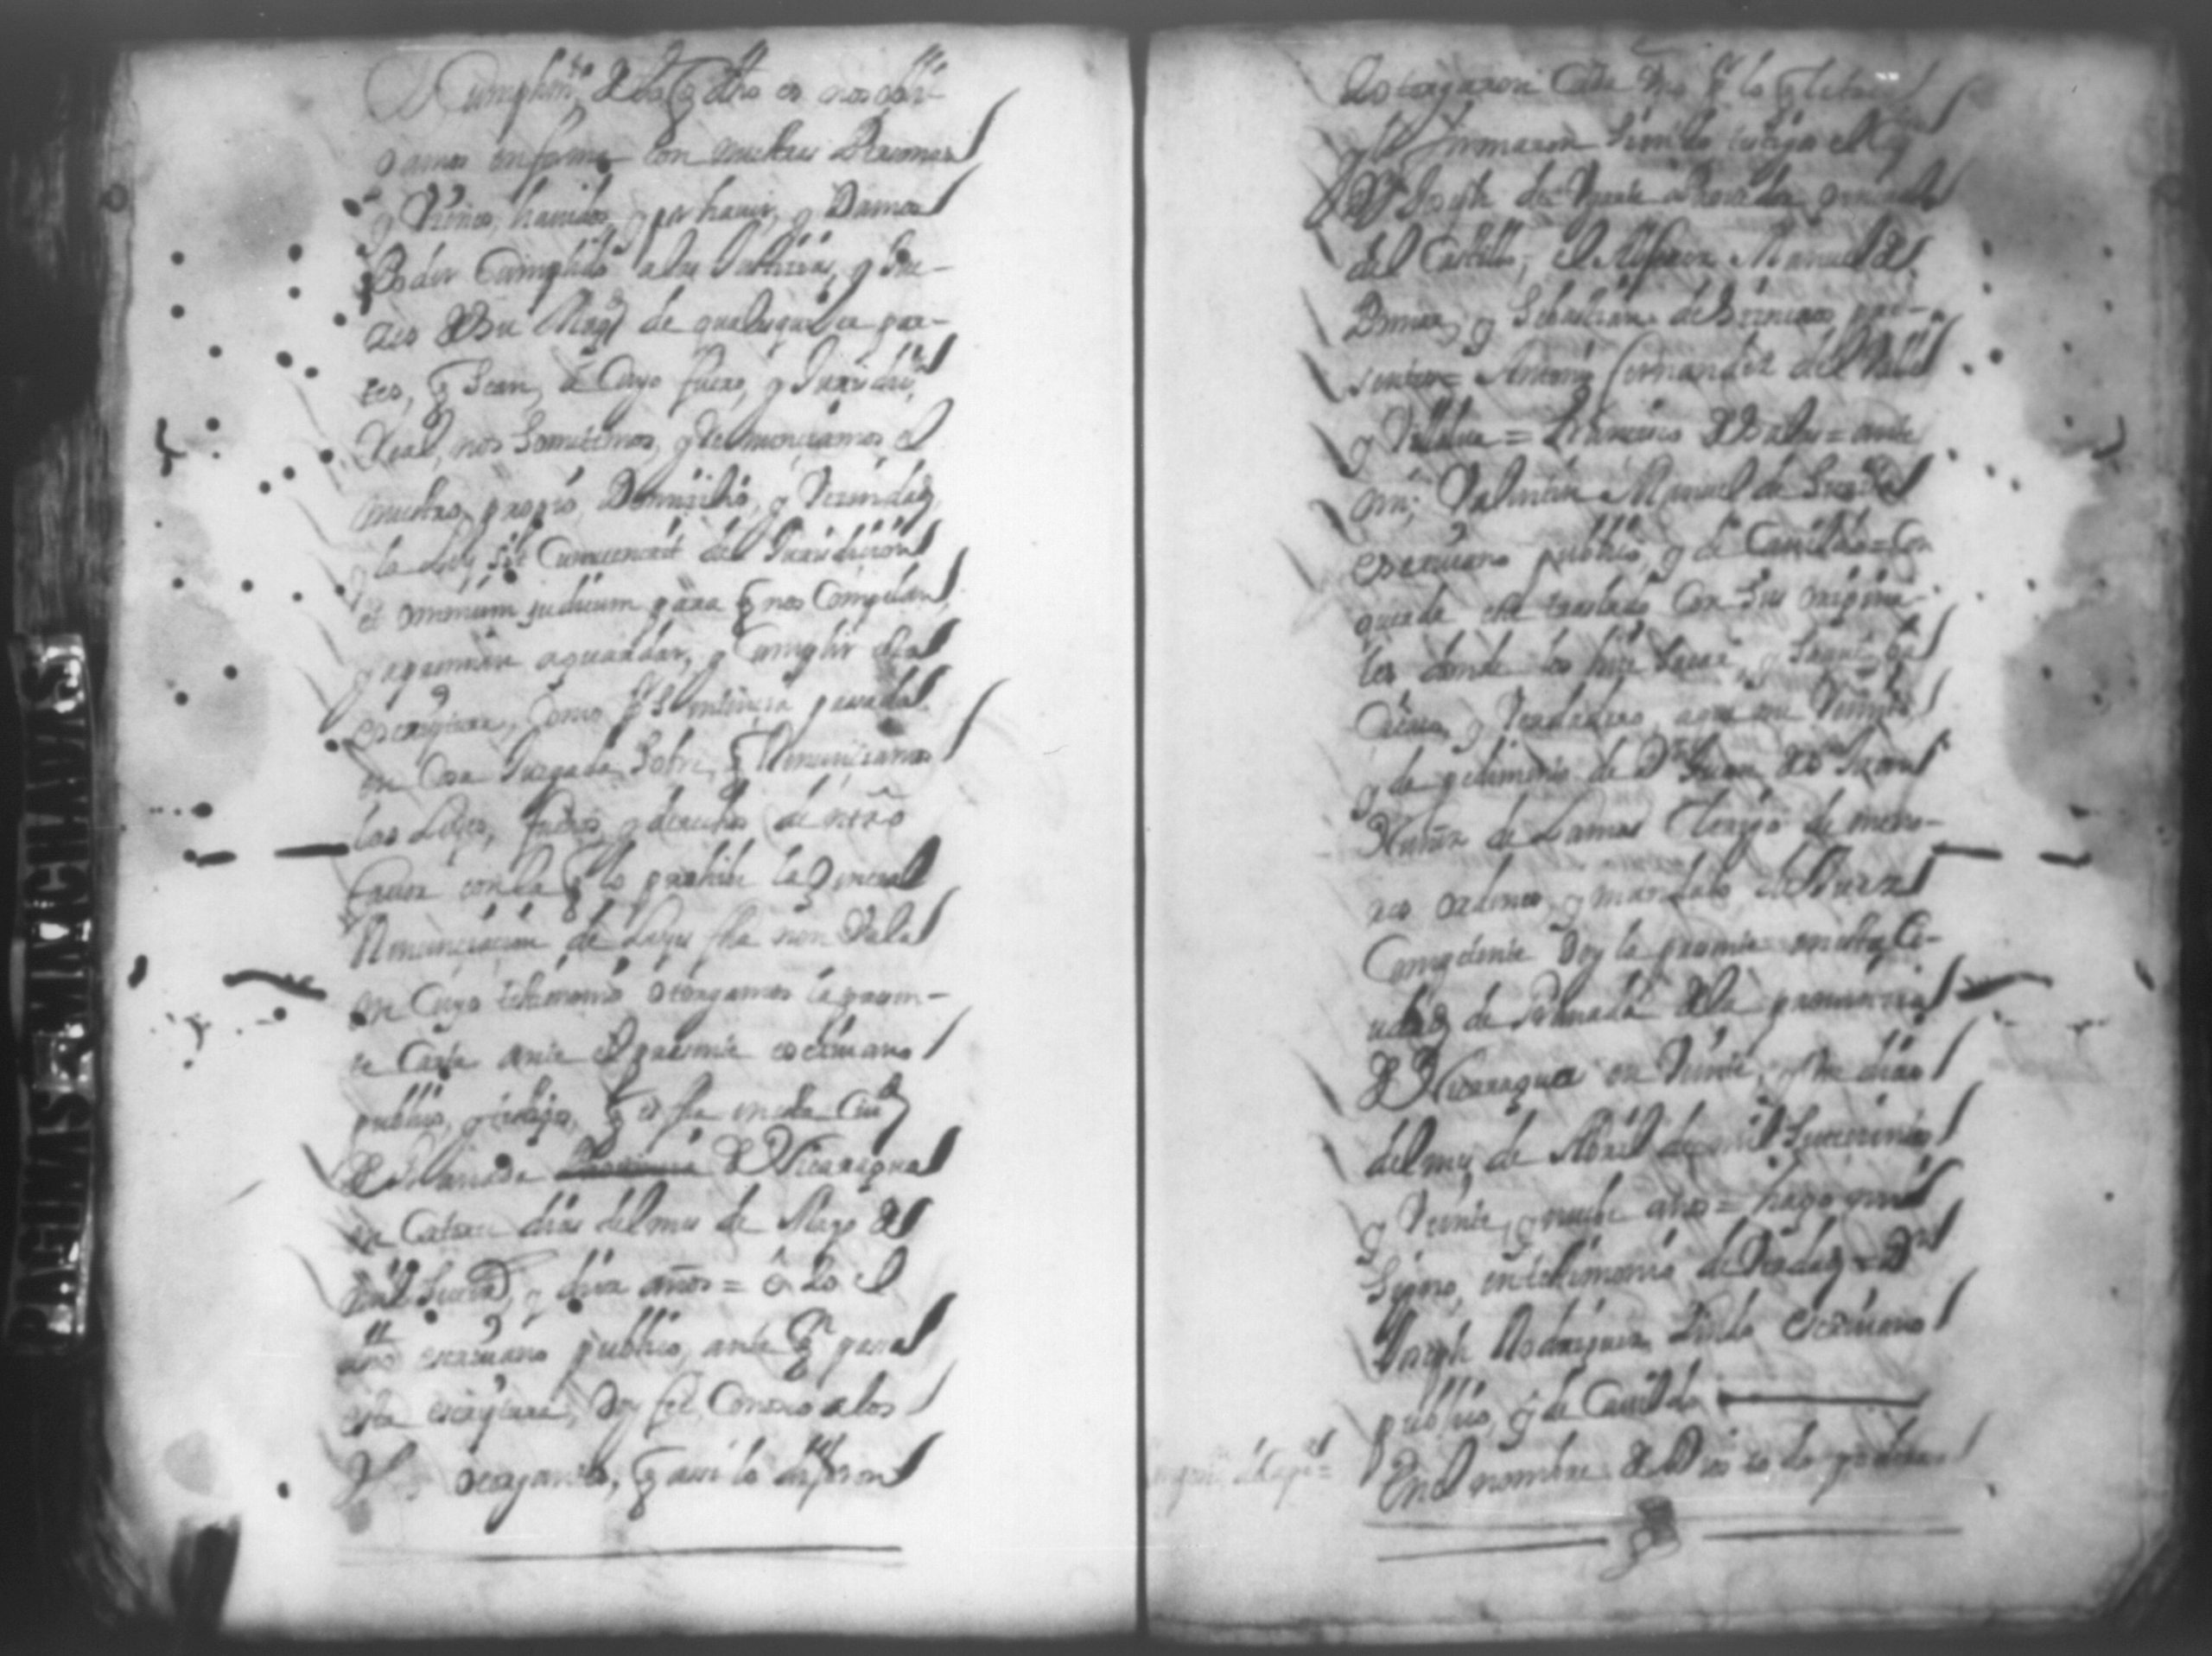 Cumplim.to de lo q dho es nos obli-
gamos en forma con nuestras Personas
y Vienes, havidos, y por haver, y Damos
Poder Cumplido a las Justicias, y Jue-
zes de Su Magd de qualesquiera par-
tes, q Sean, a Cuyo fuero, y Jurisdi.on
Real, nos Sometemos, y Renunciamos el
nuestro propio Domicilio, y Vecindad,
y la Ley sit Convenerit del Jurisdicione
et omnium judicum para q nos Compelan,
y apremien a guardar, y Cumplir esta
escriptura, Como pr Sentencia pasada
en Cosa Juzgada, Sobre q Renunciamos
las Leyes, fueros, y derechos de nro
favor con la q lo prohive la General
Renunciacion de Leyes fha non Vala
en Cuyo testimonio otorgamos la presen-
te Carta ante el presente escrivano
publico, y testigos, q es fha en esta Ciud
de Granada de Nicaragua
en Catorce dias del mes de Mayo de
mil Setes.s y diez años = e Yo el
dho escrivano publico, ante qn pasa
esta escriptura, Doy fee, Conosco a los
otorgantes, q asi lo dixeron
lo otorgaron
y lo firmaron Siendo testigos el
Dn Joseph de
del Castillo, el Alferez Manuel de
y Sebastian de pre-
sentes = Antonio Fernandez del Valle
y = Francisco = ante
mi; Valentin Manuel de
escrivano publico, y de Cavildo =
este traslado Con Sus origina-
les donde lo hize Sacar, y Saqué, bá
Cierto, y Verdadero, a que me Remito,
y de pedimento de Dn Juan de
Nuñez de Lamas Clerigo de meno-
res ordenes, y mandato de Juez
Competente Doy la presente en esta Ci-
udad de Granada de la provincia
de Nicaragua en Veinte, y dias
del mes de Abril de mil Setecientos
y Veinte, y nueve años = hago mi
Signo, en testimonio de Verdad = Dn
Joseph Rodriguez Escrivano
publico, y de Cavildo
En el nombre de Dios todo poderoso
PAGINAS MANCHADAS